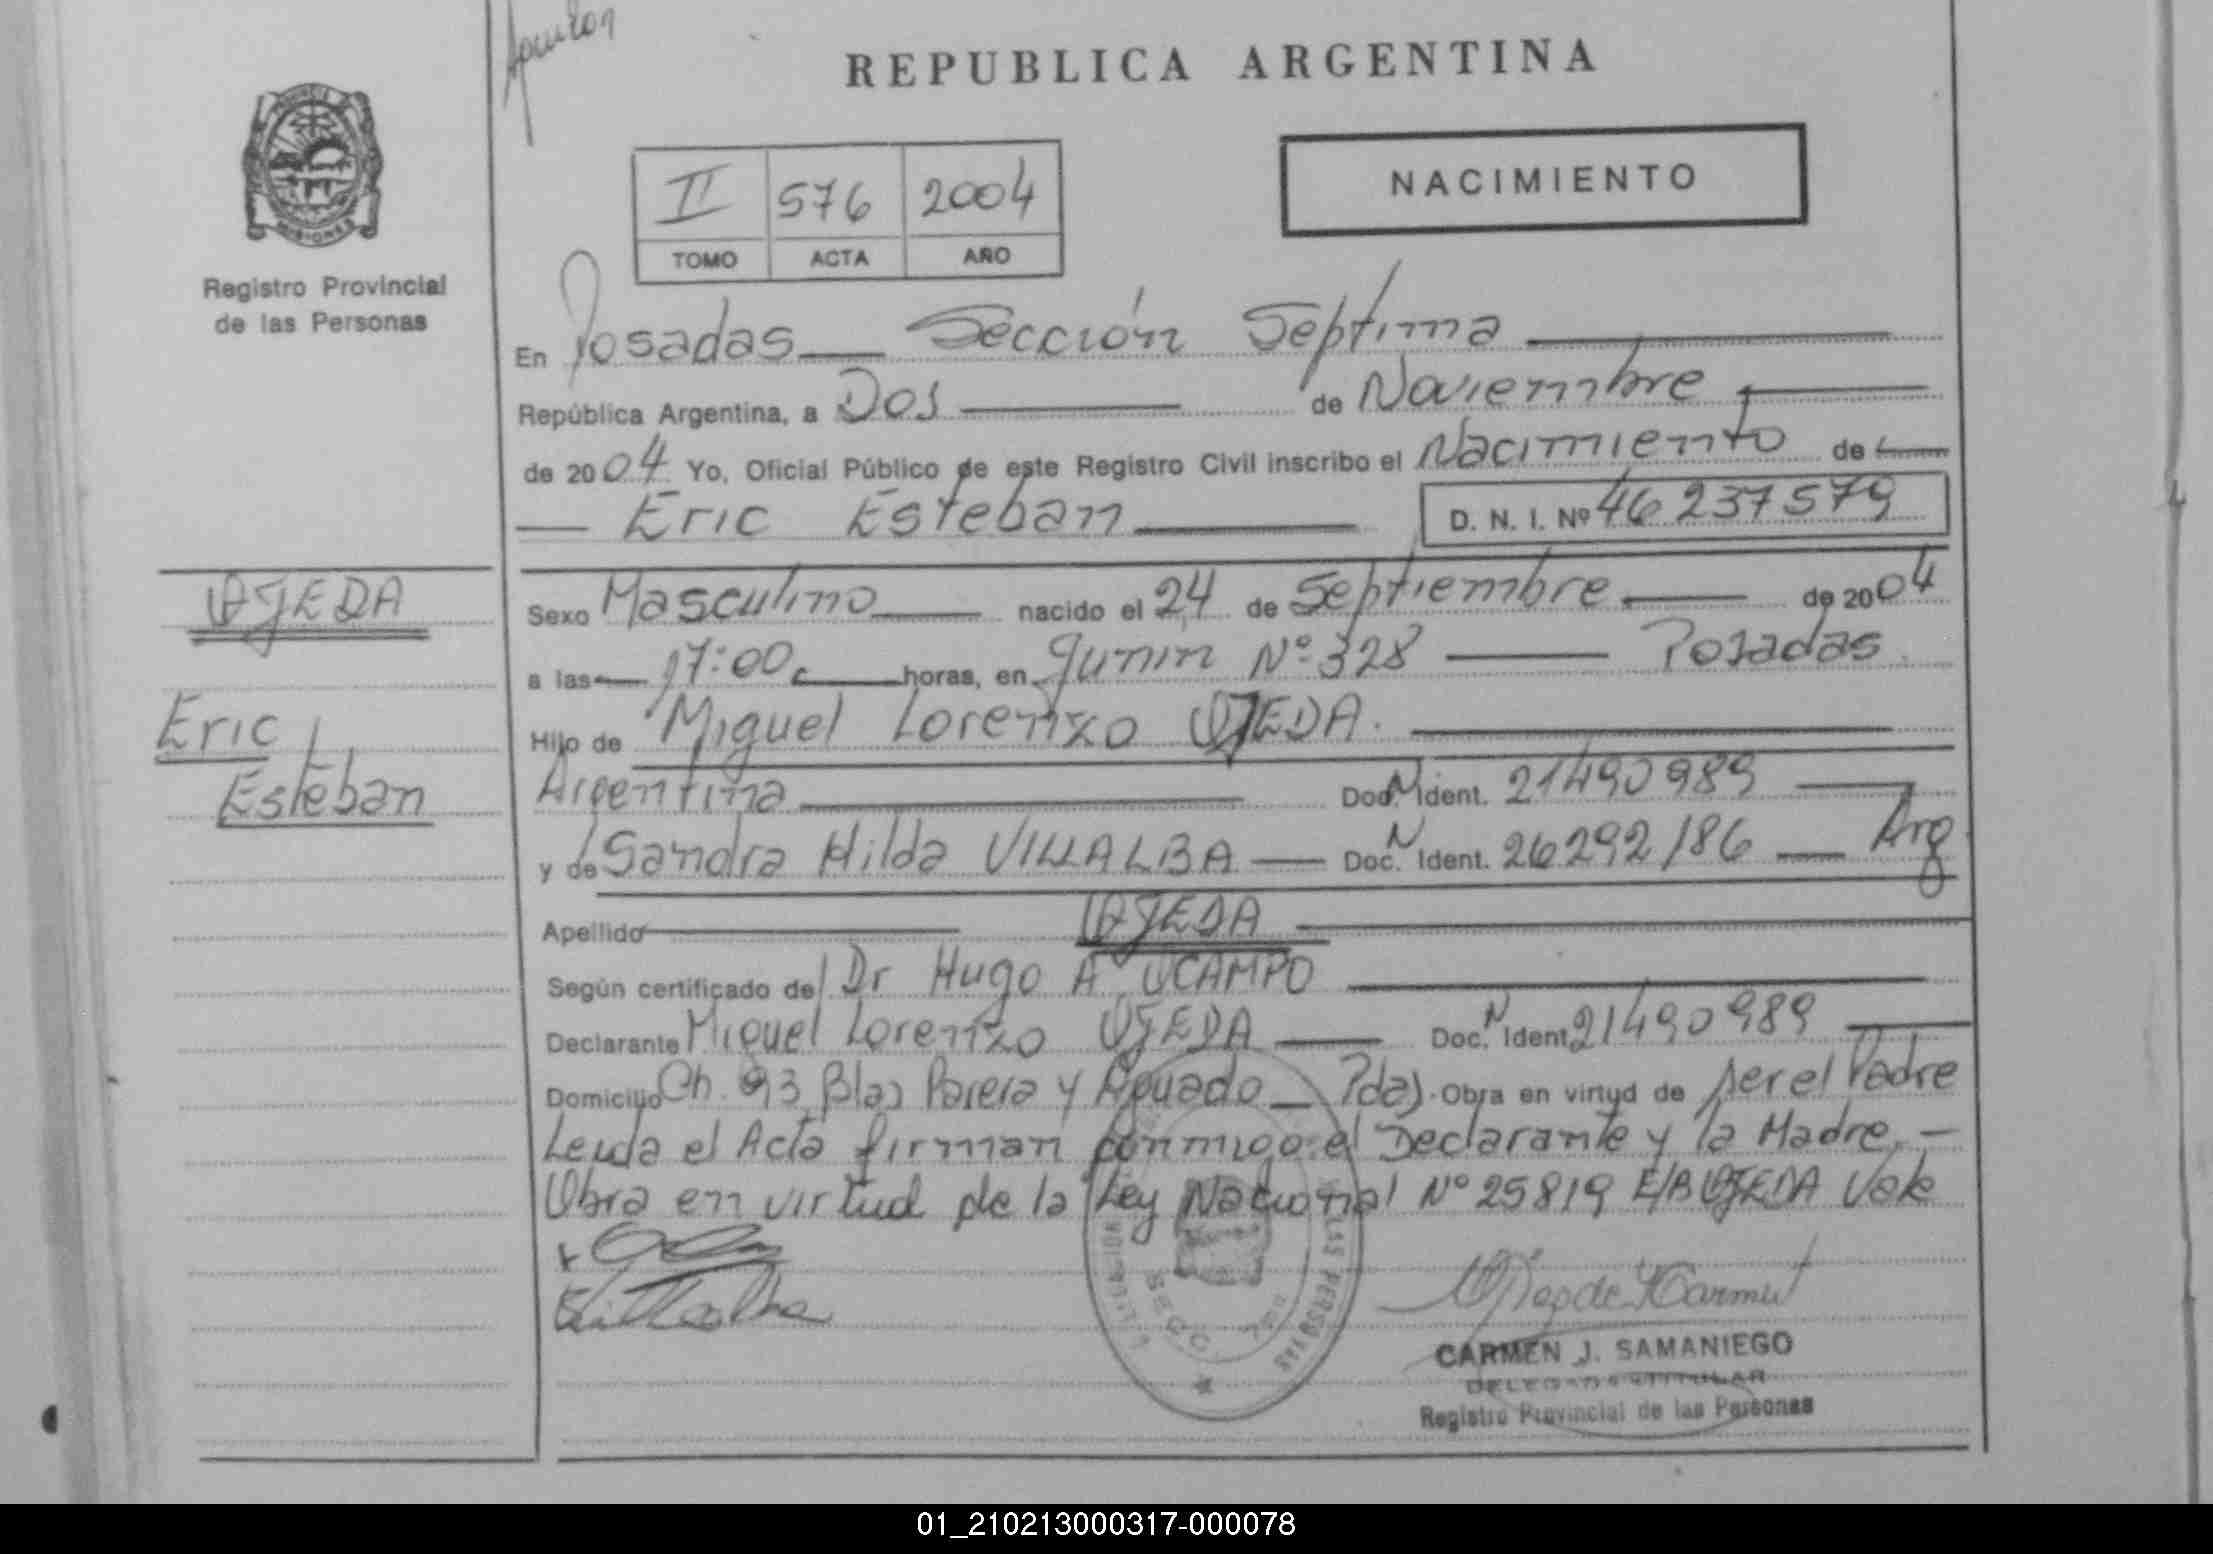 REPUBLICA ARGENTINA
PROVINCIA DE
MISIONES
Registro Provincial
de las Personas
NACIMIENTO
II 576 2004
TOMO ACTA AÑO
En Posadas Sección Septima
República Argentina, a Dos de Noviembre
de 2004 Yo, Oficial Público de este Registro Civil inscribo el Nacimiento de
Eric Esteban D. N. I. Nº 46 237579
OJEDA
Eric
Esteban
Sexo Masculino nacido el 24 de Septiembre de 2004
a las 17:00 horas, en Junin Nº 328 Posadas
Hijo de Miguel Lorenzo OJEDA.
Argentina Doc. N Ident. 21490989
y de Sandra Hilda VILLALBA Doc. N Ident. 26292186 Arg
Apellido OJEDA
Según certificado de Dr Hugo A OCAMPO
Declarante Miguel Lorenzo OJEDA Doc. N Ident 21490989
Domicilio Ch. 93 Blas Parera y Aguado Pdas. Obra en virtud de ser el Padre
Leida el Acta firman conmigo el Declarante y la Madre.-
Obra en virtud de la Ley Nacional Nº 25819 E/B OJEDA Vale
LAS PERSONAS
SECC. 7ma
CARMEN J. SAMANIEGO
DELEGADA TITULAR
Registro Provincial de las Personas
01_210213000317-000078